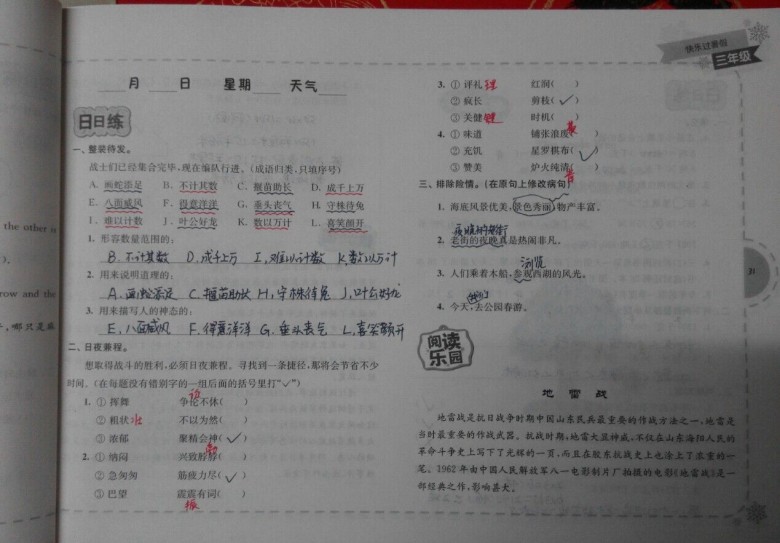 快乐过暑假
三年级
月 日 星期 天气
日日练
一、整装待发。
战士们已经集合完毕,现在编队行进。(成语归类,只填序号)
A. 画蛇添足 B. 不计其数 C. 揠苗助长 D. 成千上万
E. 八面威风 F. 得意洋洋 G. 垂头丧气 H. 守株待兔
I. 难以计数 J. 叶公好龙 K. 数以万计 L. 喜笑颜开
1. 形容数量范围的:
B.不计其数 D.成千上万 I.难以计数 K.数以万计
2. 用来说明道理的:
A.画蛇添足 C.揠苗助长 H.守株待兔 J.叶公好龙
3. 用来描写人的神态的:
E.八面威风 F.得意洋洋 G.垂头丧气 L.喜笑颜开
二、日夜兼程。
想取得战斗的胜利,必须日夜兼程。寻找到一条捷径,那将会节省不少
时间。(在每题没有错别字的一组后面的括号里打“✓”)
1. ① 挥舞 争论不休( )
② 粗状 壮 不以为然( )
③ 浓郁 聚精会神(✓)
2. ① 纳闷 兴致脖脖( )
勃
② 急匆匆 筋疲力尽(✓)
③ 巴望 震震有词( )
振
3. ① 评礼 理 红润( )
② 疯长 剪枝(✓)
③ 关健 键 时机( )
4. ① 味道 铺张浪废( )
② 充饥 星罗棋布(✓)
③ 赞美 炉火纯清( )
青
三、排除险情。(在原句上修改病句)
1. 海底风景优美,景色秀丽,物产丰富。
2. 老街的夜晚真是热闹非凡。
浏览
3. 人们乘着木船,参观西湖的风光。
我们
4. 今天,去公园春游。
阅读
乐园
地雷战
地雷战是抗日战争时期中国山东民兵最重要的作战方法之一,地雷是
当时最重要的作战武器。抗战时期,地雷大显神威,不仅在山东海阳人民的
革命斗争史上写下了光辉的一页,而且在胶东抗战史上也涂上了浓重的一
笔。1962年由中国人民解放军八一电影制片厂拍摄的电影《地雷战》是一
部经典之作,影响甚大。
31
the other is
row and the
,哪只是麻